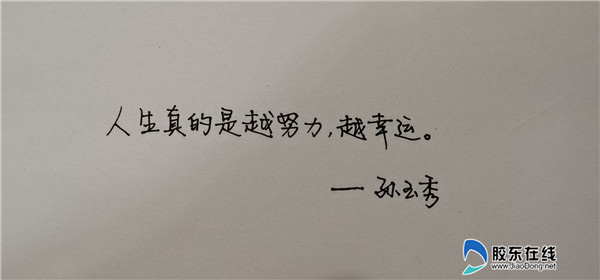 人生真的是越努力,越幸运。
— 孙玉秀
胶东在线
www.JiaoDong.net